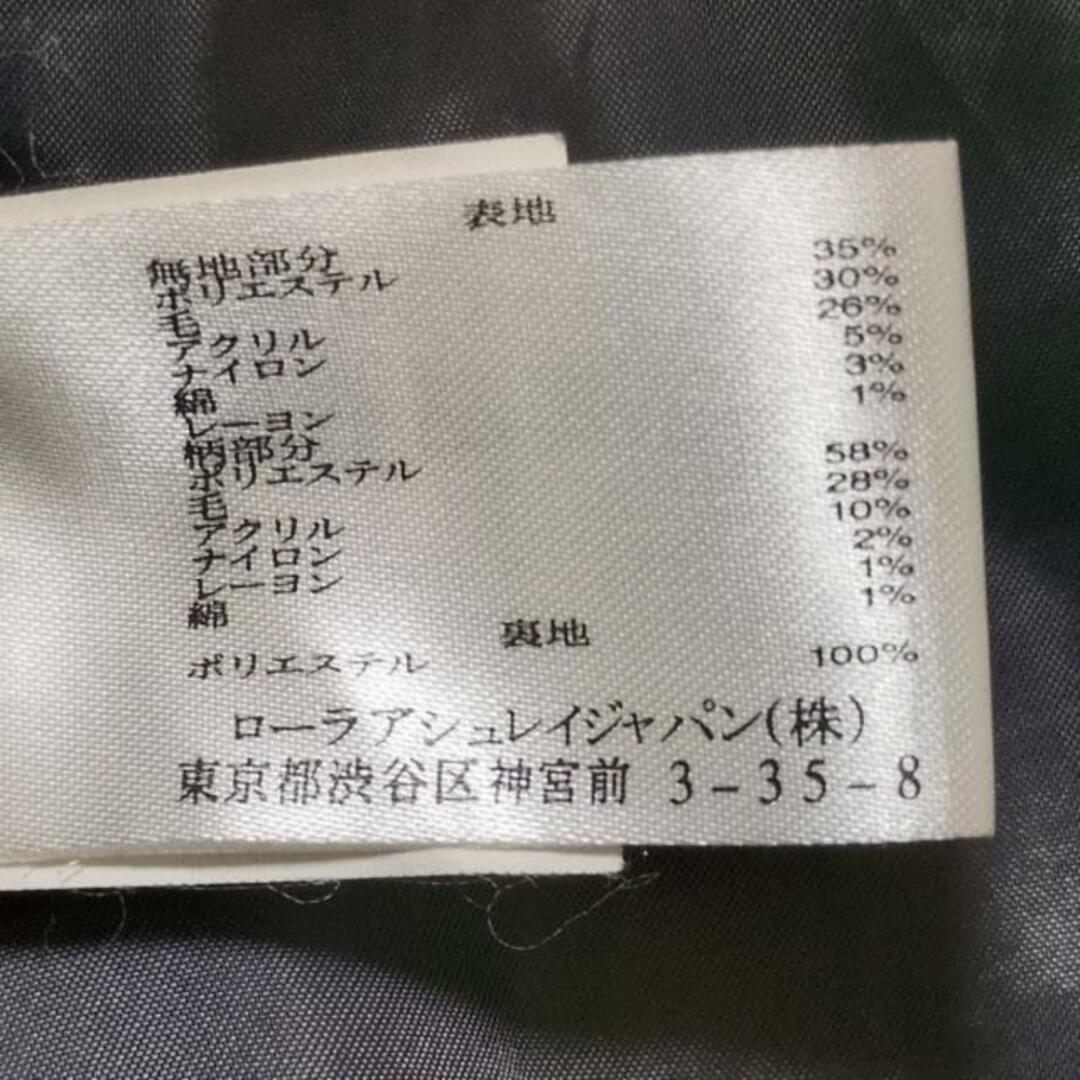 表地
無地部分
ポリエステル 35%
毛 30%
アクリル 26%
ナイロン 5%
綿 3%
レーヨン 1%
柄部分
ポリエステル 58%
毛 28%
アクリル 10%
ナイロン 2%
レーヨン 1%
綿 1%
裏地
ポリエステル 100%
ローラアシュレイジャパン(株)
東京都渋谷区神宮前 3-35-8